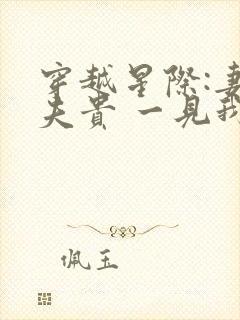 穿越星際:妻
夫貴 一見我
佩玉